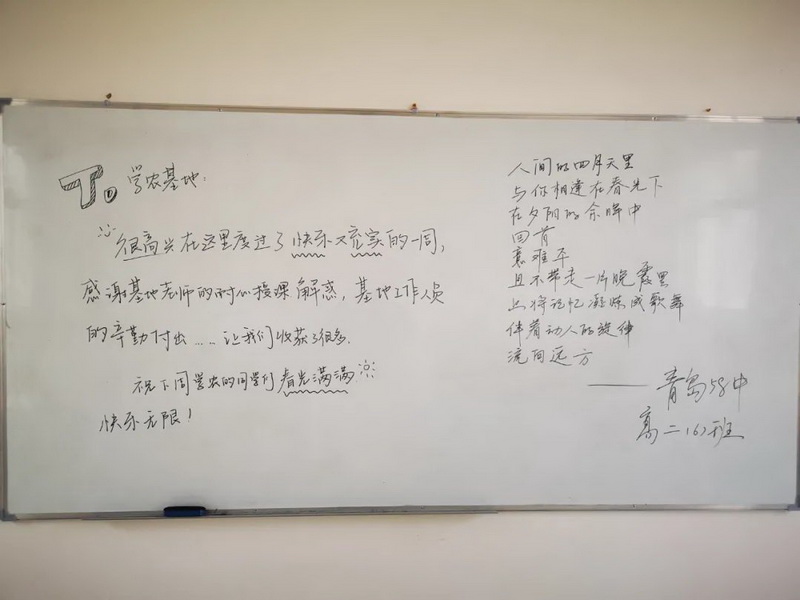 To 学农基地:
很高兴在这里度过了快乐又充实的一周,
感谢基地老师的耐心授课解惑，基地工作人员
的辛勤付出……让我们收获了很多.
祝下周学农的同学们 春光满满
快乐无限！
人间的四月天里
与你相逢在春光下
在夕阳的余晖中
回首
意难平
且不带走一片晚霞里
将记忆凝炼成歌舞
伴着动人的旋律
流向远方
——青岛58中
高二(6)班